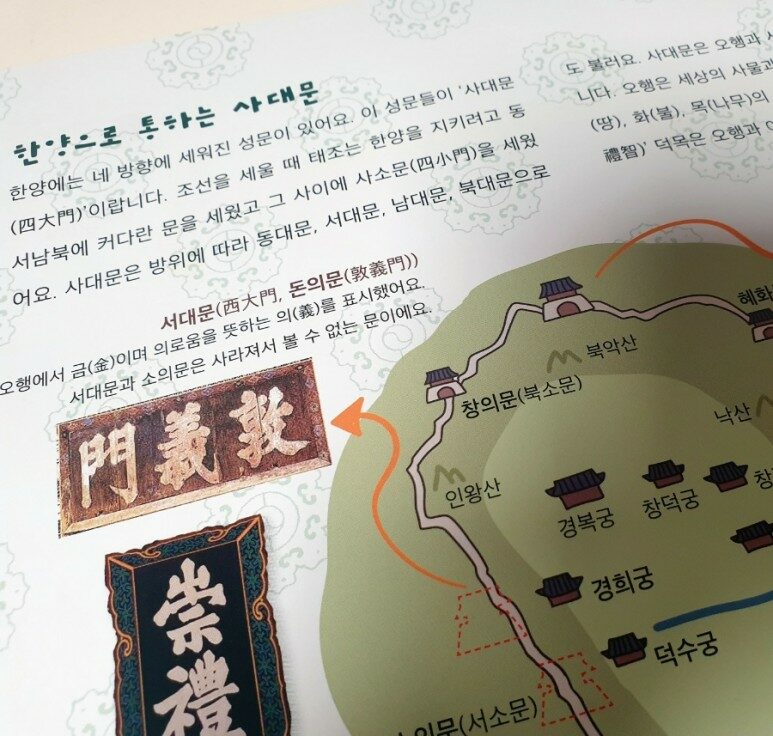 한양으로 통하는 사대문
한양에는 네 방향에 세워진 성문이 있어요. 이 성문들이 '사대문
(四大門)'이랍니다. 조선을 세울 때 태조는 한양을 지키려고 동
서남북에 커다란 문을 세웠고 그 사이에 사소문(四小門)을 세웠
어요. 사대문은 방위에 따라 동대문, 서대문, 남대문, 북대문으로
도 불러요. 사대문은 오행과
니다. 오행은 세상의 사물과
(땅), 화(불), 목(나무)의
禮智)' 덕목은 오행과
서대문(西大門, 돈의문(敦義門))
오행에서 금(金)이며 의로움을 뜻하는 의(義)를 표시했어요.
서대문과 소의문은 사라져서 볼 수 없는 문이에요.
門義敦
崇禮
혜화
북악산
창의문(북소문)
낙산
인왕산
경복궁
창덕궁
창
경희궁
덕수궁
의문(서소문)